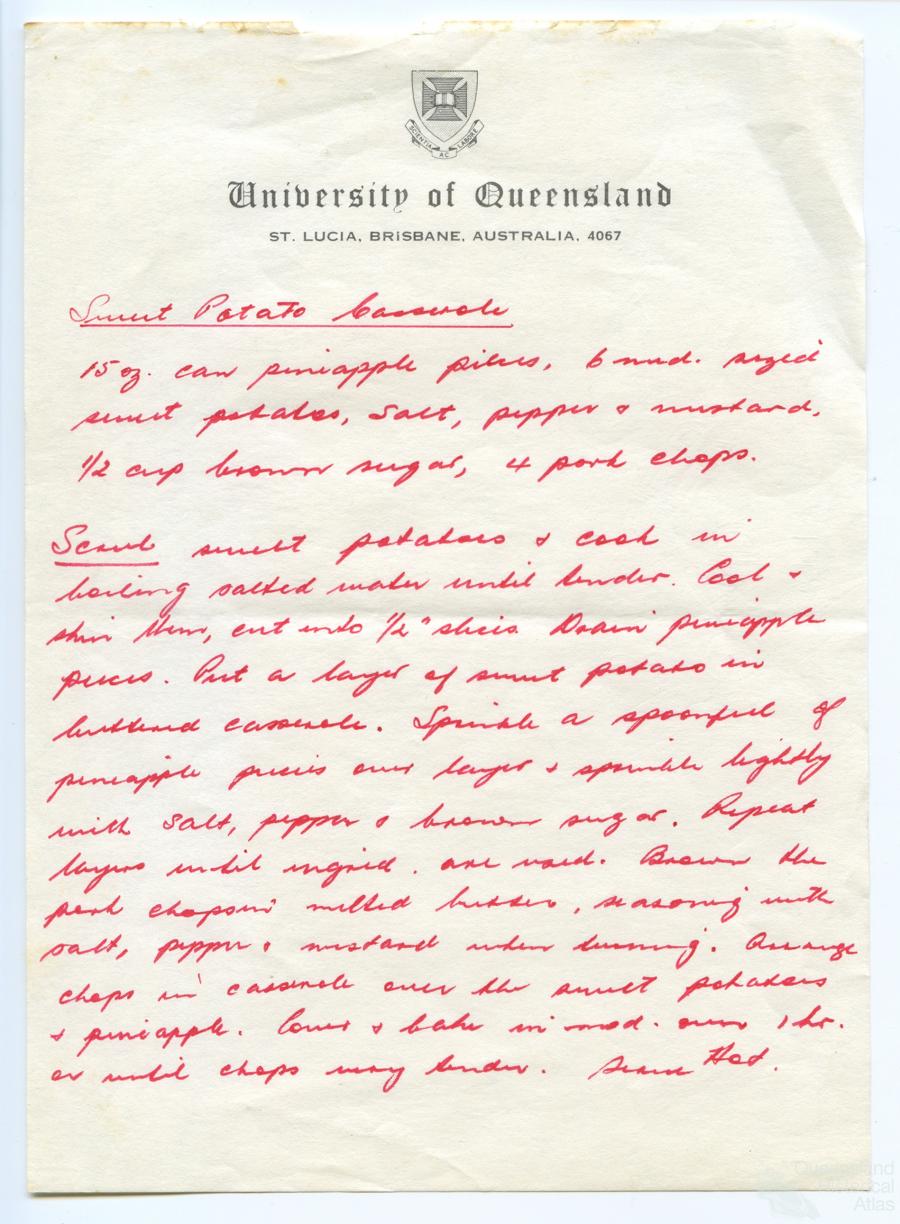 SCIENTIA AC LABORE
University of Queensland
ST. LUCIA, BRISBANE, AUSTRALIA, 4067
Sweet Potato Casserole
15 oz. can pineapple pieces, 6 med. sized
sweet potatoes, Salt, pepper & mustard,
1/2 cup brown sugar, 4 pork chops.
Scrub sweet potatoes & cook in
boiling salted water until tender. Cool &
skin them, cut into 1/2" slices. Drain pineapple
pieces. Put a layer of sweet potato in
buttered casserole. Sprinkle a spoonful of
pineapple pieces over layer & sprinkle lightly
with salt, pepper & brown sugar. Repeat
layers until ingred. are used. Brown the
pork chops in melted butter, seasoning with
salt, pepper & mustard when turning. Arrange
chops in casserole over the sweet potatoes
& pineapple. Cover & bake in mod. oven 1 hr.
or until chops very tender. Serve Hot.
Queensland
Historical
Atlas